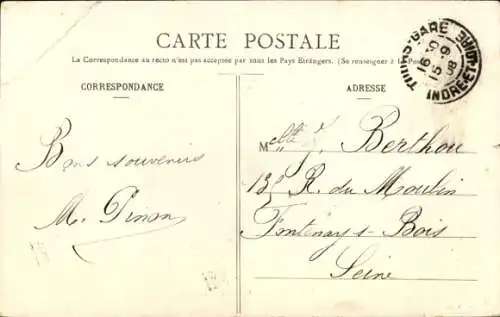 CARTE POSTALE
La Correspondance au recto n'est pas acceptée par tous les Pays Étrangers. (Se renseigner à la Pos
CORRESPONDANCE
ADRESSE
TOURS-GARE
16-10
15-9
08
INDRE-ET-LOIRE
Melle J. Berthou
Bons souvenirs
R. du Moulin
M. Pinon
Fontenay s- Bois
Seine